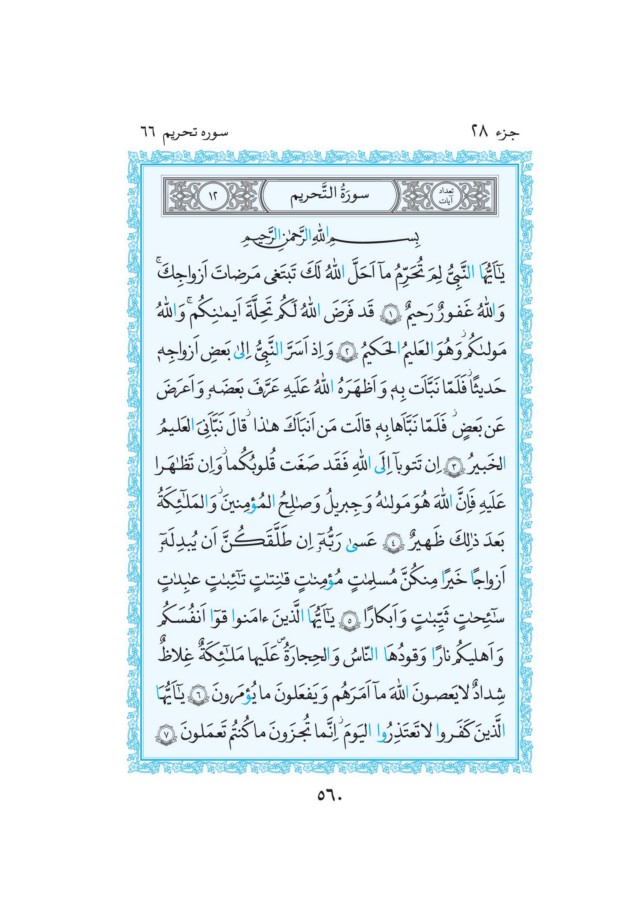 جزء ۲۸
سوره تحریم ۶۶
تعداد آیات
سورَةُ التَّحريم
۱۲
بِسمِ اللهِ الرَّحمٰنِ الرَّحيمِ
يٰٓاَيُّهَا النَّبِيُّ لِمَ تُحَرِّمُ مآ اَحَلَّ اللهُ لَكَ تَبتَغى مَرضاتَ اَزواجِكَۚ
وَاللهُ غَفورٌ رَحيمٌ ﴿۱﴾ قَد فَرَضَ اللهُ لَكُم تَحِلَّةَ اَيمٰنِكُمۚ وَاللهُ
مَولىٰكُم وَهُوَ العَليمُ الحَكيمُ ﴿۲﴾ وَاِذ اَسَرَّ النَّبِيُّ اِلىٰ بَعضِ اَزواجِهٖ
حَديثًا فَلَمّا نَبَّاَت بِهٖ وَاَظهَرَهُ اللهُ عَلَيهِ عَرَّفَ بَعضَهٗ وَاَعرَضَ
عَن بَعضٍۖ فَلَمّا نَبَّاَها بِهٖ قالَت مَن اَنبَاَكَ هٰذاۖ قالَ نَبَّاَنِىَ العَليمُ
الخَبيرُ ﴿۳﴾ اِن تَتوبآ اِلَى اللهِ فَقَد صَغَت قُلوبُكُماۖ وَاِن تَظٰهَرا
عَلَيهِ فَاِنَّ اللهَ هُوَ مَولىٰهُ وَجِبريلُ وَصٰلِحُ المُؤمِنينَۖ وَالمَلٰٓئِكَةُ
بَعدَ ذٰلِكَ ظَهيرٌ ﴿٤﴾ عَسىٰ رَبُّهٗٓ اِن طَلَّقَكُنَّ اَن يُبدِلَهٗٓ
اَزواجًا خَيرًا مِنكُنَّ مُسلِمٰتٍ مُؤمِنٰتٍ قٰنِتٰتٍ تٰٓئِبٰتٍ عٰبِدٰتٍ
سٰٓئِحٰتٍ ثَيِّبٰتٍ وَاَبكارًا ﴿۵﴾ يٰٓاَيُّهَا الَّذينَ ءامَنوا قوٓا اَنفُسَكُم
وَاَهليكُم نارًا وَقودُهَا النّاسُ وَالحِجارَةُ عَلَيها مَلٰٓئِكَةٌ غِلاظٌ
شِدادٌ لا يَعصونَ اللهَ مآ اَمَرَهُم وَيَفعَلونَ ما يُؤمَرونَ ﴿۶﴾ يٰٓاَيُّهَا
الَّذينَ كَفَروا لا تَعتَذِرُوا اليَومَۖ اِنَّما تُجزَونَ ما كُنتُم تَعمَلونَ ﴿۷﴾
۵۶۰